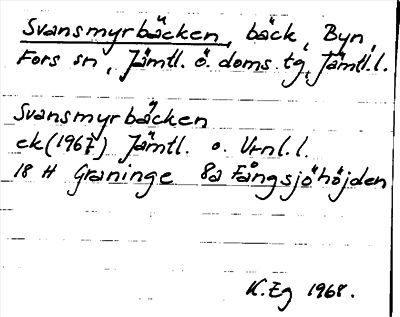 Svansmyrbäcken, bäck, Byn,
Fors sn, Jämtl. ö. doms. tg, Jämtl.l.
Svansmyrbäcken
ek (1967) Jämtl. o. Vrnl.l.
18 H Graninge 8a Fångsjöhöjden
K.Eg 1968.